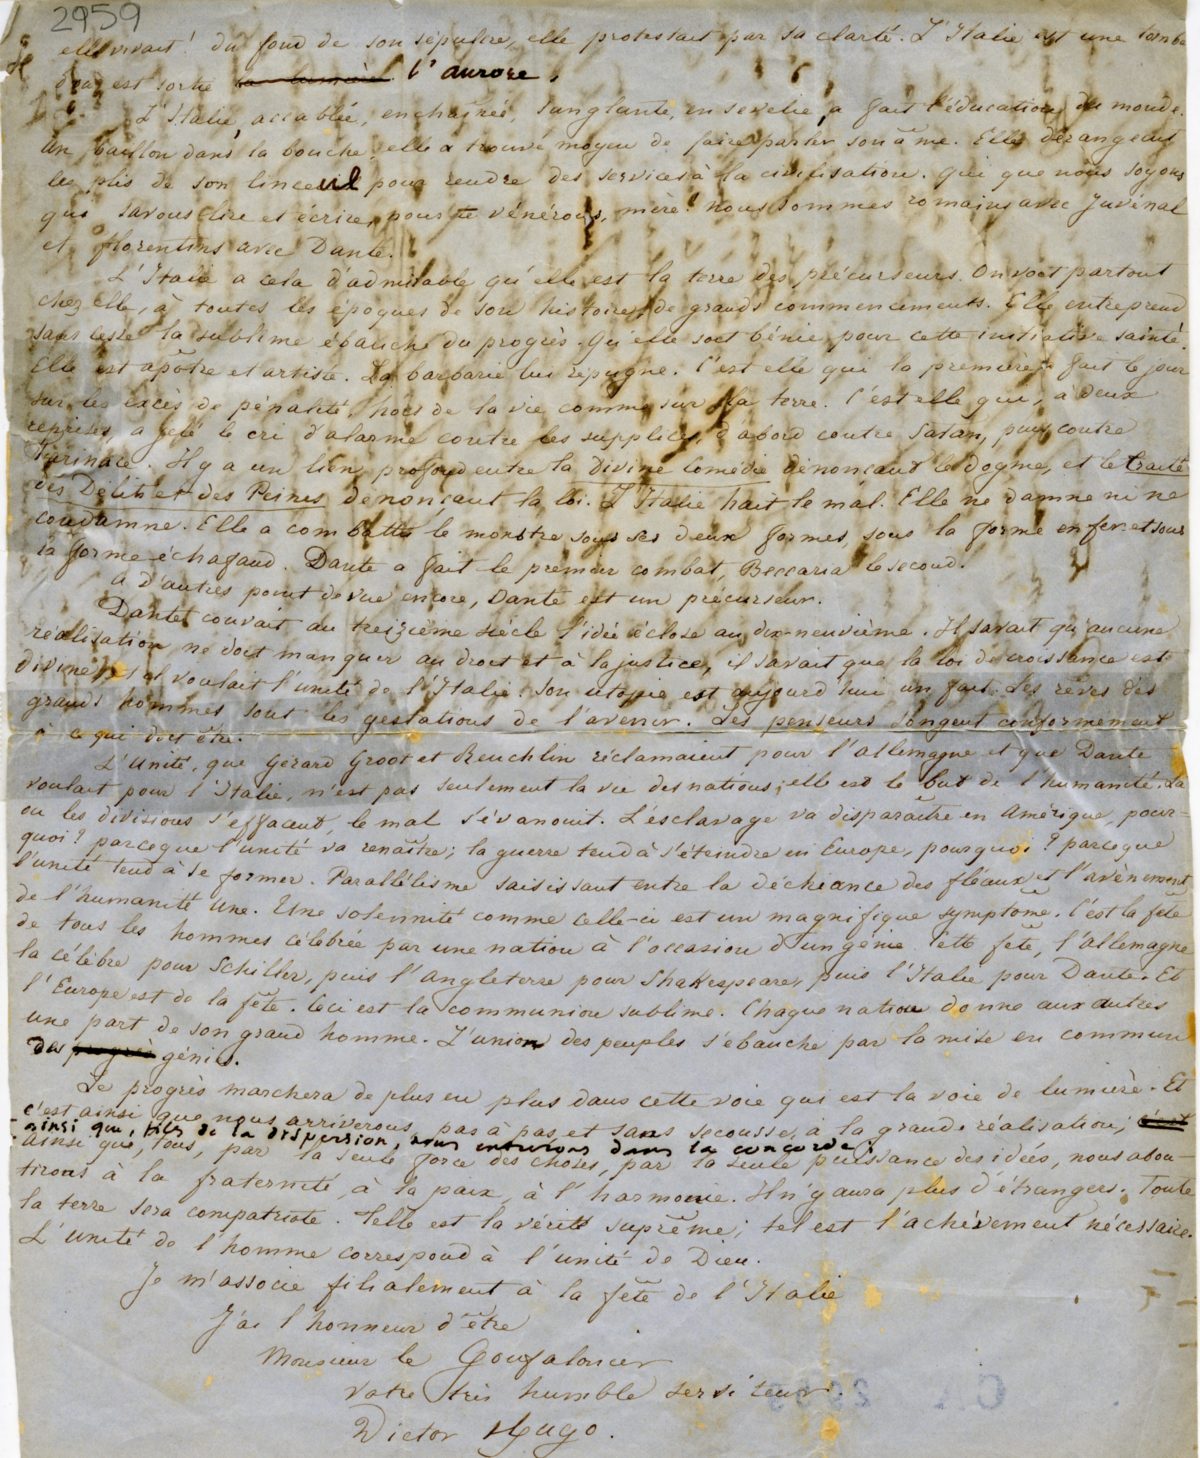 2959
elle vivait! du fond de son sépulcre, elle protestait par sa clarté. L'Italie est une tombe
d'où est sortie la lumière l'aurore.
L'Italie, accablée, enchaînée, sanglante, ensevelie, a fait l'éducation du monde.
Un baillon dans la bouche, elle a trouvé moyen de faire parler son âme. Elle dérangeait
les plis de son linceul pour rendre des services à la civilisation. Qui que nous soyons
qui savons lire et écrire, nous te vénérons, mère! nous sommes romains avec Juvénal
et florentins avec Dante.
L'Italie a cela d'admirable qu'elle est la terre des précurseurs. On voit partout
chez elle, à toutes les époques de son histoire, de grands commencements. Elle entreprend
sans cesse la sublime ébauche du progrès. Qu'elle soit bénie pour cette initiative sainte.
Elle est apôtre et artiste. La barbarie lui répugne. C'est elle qui la première a fait le jour
sur les excès de pénalité, hors de la vie comme sur la terre. C'est elle qui, à deux
reprises, a jeté le cri d'alarme contre les supplices, d'abord contre Satan, puis contre
Farinace. Il y a un lien profond entre la Divine Comédie dénonçant le dogme, et le traité
des Délits et des Peines dénonçant la loi. L'Italie hait le mal. Elle ne damne ni ne
condamne. Elle a combattu le monstre sous ses deux formes, sous la forme enfer et sous
la forme échafaud. Dante a fait le premier combat, Beccaria le second.
A d'autres point de vue encore, Dante est un précurseur.
Dante couvait au treizième siècle l'idée éclose au dix-neuvième. Il savait qu'aucune
réalisation ne doit manquer au droit et à la justice, il savait que la loi de croissance est
divine, et il voulait l'unité de l'Italie. Son utopie est aujourd'hui un fait. Les rêves des
grands hommes sont les gestations de l'avenir. Les penseurs songent conformément
à ce qui doit être.
L'unité, que Gérard Groot et Reuchlin réclamaient pour l'allemagne et que Dante
voulait pour l'Italie, n'est pas seulement la vie des nations; elle est le but de l'humanité. Là
où les divisions s'effacent, le mal s'évanouit. L'esclavage va disparaître en Amérique, pour-
quoi? parceque l'unité va renaître; la guerre tend à s'éteindre en Europe, pourquoi? parceque
l'unité tend à se former. Parallélisme saisissant entre la déchéance des fléaux et l'avènement
de l'humanité une. Une solennité comme celle-ci est un magnifique symptome. C'est la fête
de tous les hommes célébrée par une nation à l'occasion d'un génie. Cette fête, l'allemagne
la célèbre pour Schiller, puis l'Angleterre pour Shakespeare, puis l'Italie pour Dante. Et
l'Europe est de la fête. Ceci est la communion sublime. Chaque nation donne aux autres
une part de son grand homme. L'union des peuples s'ébauche par la mise en commun
des progrès génies.
Le progrès marchera de plus en plus dans cette voie qui est la voie de lumière. Et
c'est ainsi que nous arriverons, pas à pas, et sans secousse, à la grande réalisation; c'est
ainsi que, fils de la dispersion, nous entrerons dans la concorde;
ainsi que, tous, par la seule force des choses, par la seule puissance des idées, nous abou-
tirons à la fraternité, à la paix, à l'harmonie. Il n'y aura plus d'étrangers. Toute
la terre sera compatriote. Telle est la vérité suprême; tel est l'achèvement nécessaire.
L'unité de l'homme correspond à l'unité de Dieu.
Je m'associe filialement à la fête de l'Italie
J'ai l'honneur d'être
Monsieur le Gonfalonier
votre très humble serviteur.
Victor Hugo.